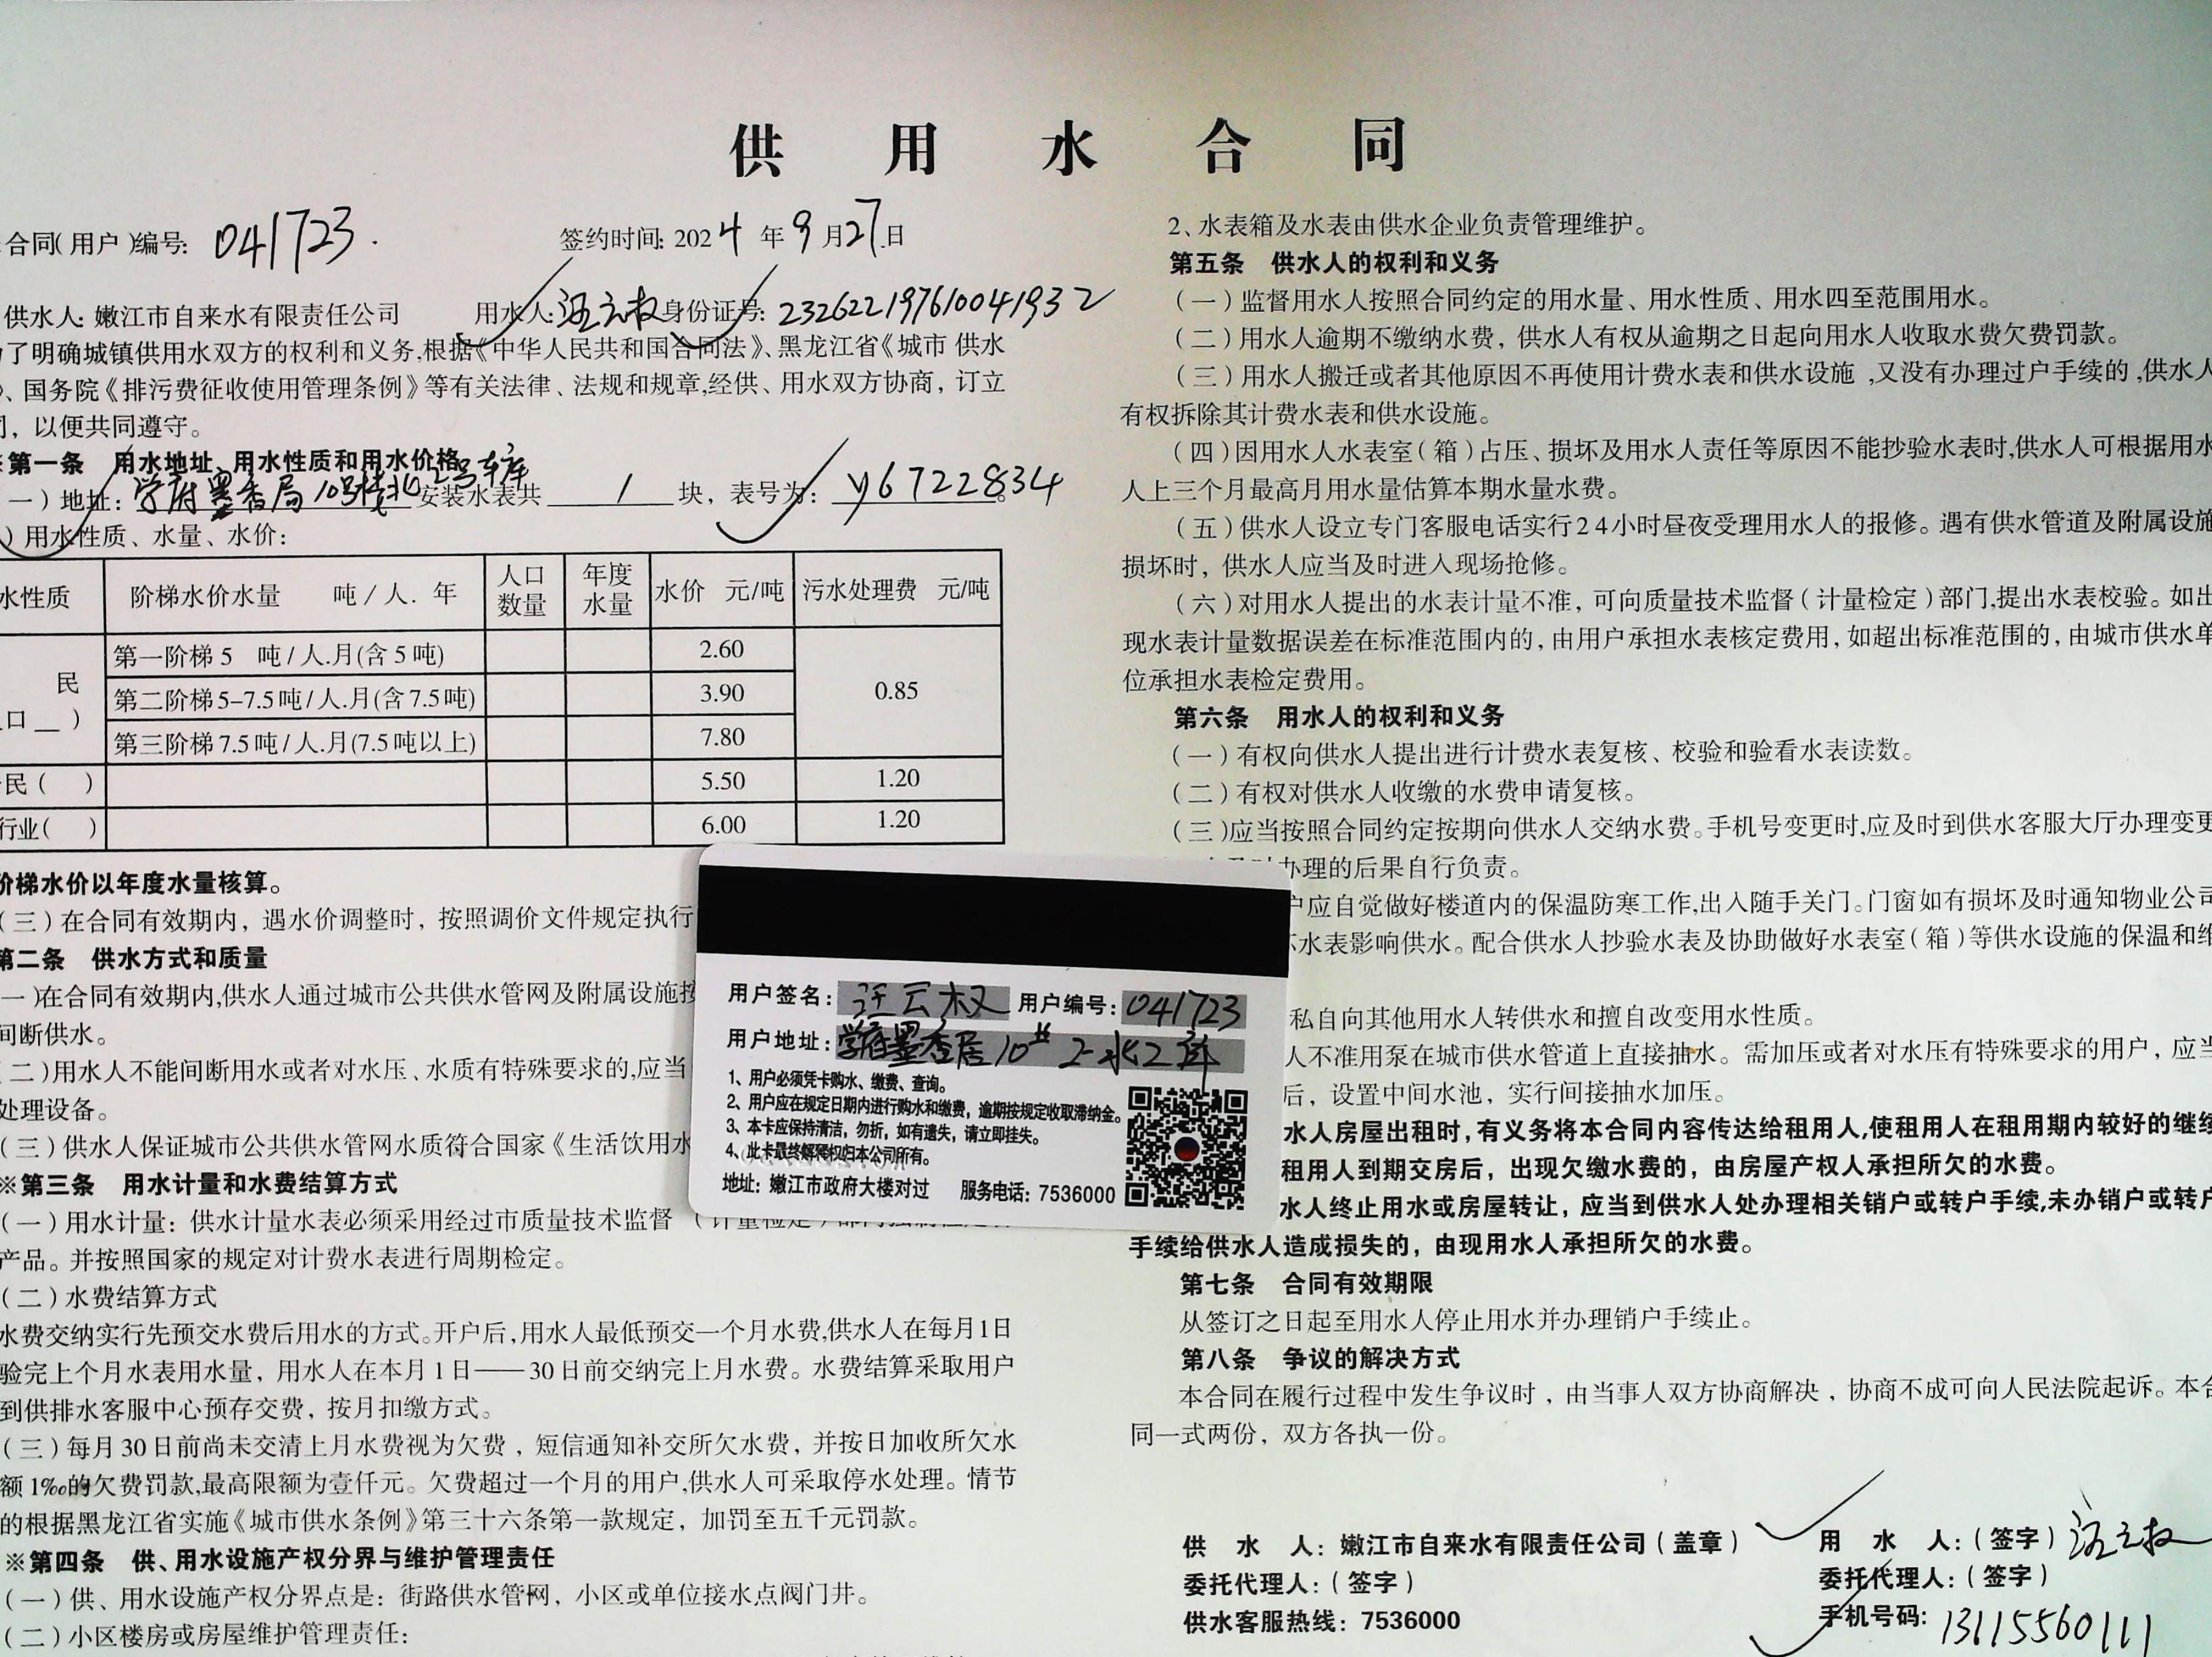 供用水合同
合同(用户)编号: 041723.
签约时间: 2024年9月27日
供水人: 嫩江市自来水有限责任公司 用水人: 汪云权 身份证号: 232622197610041932
了明确城镇供用水双方的权利和义务,根据《中华人民共和国合同法》、黑龙江省《城市 供水
》、国务院《排污费征收使用管理条例》等有关法律、法规和规章,经供、用水双方协商，订立
，以便共同遵守。
※第一条 用水地址、用水性质和用水价格
一）地址: 学府墨香局10号楼北2号车库 安装水表共 1 块，表号为: y6722834。
）用水性质、水量、水价:
水性质 阶梯水价水量 吨/人. 年 人口数量 年度水量 水价 元/吨 污水处理费 元/吨
民 第一阶梯 5 吨/人.月(含 5 吨) 2.60 0.85
第二阶梯 5-7.5吨/人.月(含 7.5吨) 3.90
口__ ) 第三阶梯 7.5 吨/人.月(7.5 吨以上) 7.80
民( ) 5.50 1.20
行业( ) 6.00 1.20
阶梯水价以年度水量核算。
(三)在合同有效期内，遇水价调整时，按照调价文件规定执行
第二条 供水方式和质量
一)在合同有效期内,供水人通过城市公共供水管网及附属设施按
间断供水。
二)用水人不能间断用水或者对水压、水质有特殊要求的,应当
处理设备。
(三)供水人保证城市公共供水管网水质符合国家《生活饮用水
※第三条 用水计量和水费结算方式
(一)用水计量: 供水计量水表必须采用经过市质量技术监督
产品。并按照国家的规定对计费水表进行周期检定。
(二)水费结算方式
水费交纳实行先预交水费后用水的方式。开户后,用水人最低预交一个月水费,供水人在每月1日
验完上个月水表用水量，用水人在本月 1 日——30 日前交纳完上月水费。水费结算采取用户
到供排水客服中心预存交费，按月扣缴方式。
(三)每月 30 日前尚未交清上月水费视为欠费，短信通知补交所欠水费，并按日加收所欠水
额 1‰的欠费罚款,最高限额为壹仟元。欠费超过一个月的用户,供水人可采取停水处理。情节
的根据黑龙江省实施《城市供水条例》第三十六条第一款规定，加罚至五千元罚款。
※第四条 供、用水设施产权分界与维护管理责任
(一)供、用水设施产权分界点是: 街路供水管网，小区或单位接水点阀门井。
(二)小区楼房或房屋维护管理责任:
2、水表箱及水表由供水企业负责管理维护。
第五条 供水人的权利和义务
(一)监督用水人按照合同约定的用水量、用水性质、用水四至范围用水。
(二)用水人逾期不缴纳水费，供水人有权从逾期之日起向用水人收取水费欠费罚款。
(三)用水人搬迁或者其他原因不再使用计费水表和供水设施,又没有办理过户手续的,供水人
有权拆除其计费水表和供水设施。
(四)因用水人水表室(箱)占压、损坏及用水人责任等原因不能抄验水表时,供水人可根据用水
人上三个月最高月用水量估算本期水量水费。
(五)供水人设立专门客服电话实行24小时昼夜受理用水人的报修。遇有供水管道及附属设施
损坏时，供水人应当及时进入现场抢修。
(六)对用水人提出的水表计量不准，可向质量技术监督(计量检定)部门,提出水表校验。如出
现水表计量数据误差在标准范围内的，由用户承担水表核定费用，如超出标准范围的，由城市供水单
位承担水表检定费用。
第六条 用水人的权利和义务
(一)有权向供水人提出进行计费水表复核、校验和验看水表读数。
(二)有权对供水人收缴的水费申请复核。
(三)应当按照合同约定按期向供水人交纳水费。手机号变更时,应及时到供水客服大厅办理变更
办理的后果自行负责。
户应自觉做好楼道内的保温防寒工作,出入随手关门。门窗如有损坏及时通知物业公司
水表影响供水。配合供水人抄验水表及协助做好水表室(箱)等供水设施的保温和维
私自向其他用水人转供水和擅自改变用水性质。
人不准用泵在城市供水管道上直接抽水。需加压或者对水压有特殊要求的用户，应当
后，设置中间水池，实行间接抽水加压。
水人房屋出租时,有义务将本合同内容传达给租用人,使租用人在租用期内较好的继续
租用人到期交房后，出现欠缴水费的，由房屋产权人承担所欠的水费。
水人终止用水或房屋转让，应当到供水人处办理相关销户或转户手续,未办销户或转户
手续给供水人造成损失的，由现用水人承担所欠的水费。
第七条 合同有效期限
从签订之日起至用水人停止用水并办理销户手续止。
第八条 争议的解决方式
本合同在履行过程中发生争议时，由当事人双方协商解决，协商不成可向人民法院起诉。本合
同一式两份，双方各执一份。
供 水 人: 嫩江市自来水有限责任公司(盖章)
委托代理人:(签字)
供水客服热线: 7536000
用 水 人:(签字) 汪云权
委托代理人:(签字)
手机号码: 13115560111
用户签名: 汪云权 用户编号: 041723
用户地址: 学府墨香居10# 2-北2库
1、用户必须凭卡购水、缴费、查询。
2、用户应在规定日期内进行购水和缴费，逾期按规定收取滞纳金。
3、本卡应保持清洁，勿折，如有遗失，请立即挂失。
4、此卡最终解释权归本公司所有。
地址: 嫩江市政府大楼对过 服务电话: 7536000